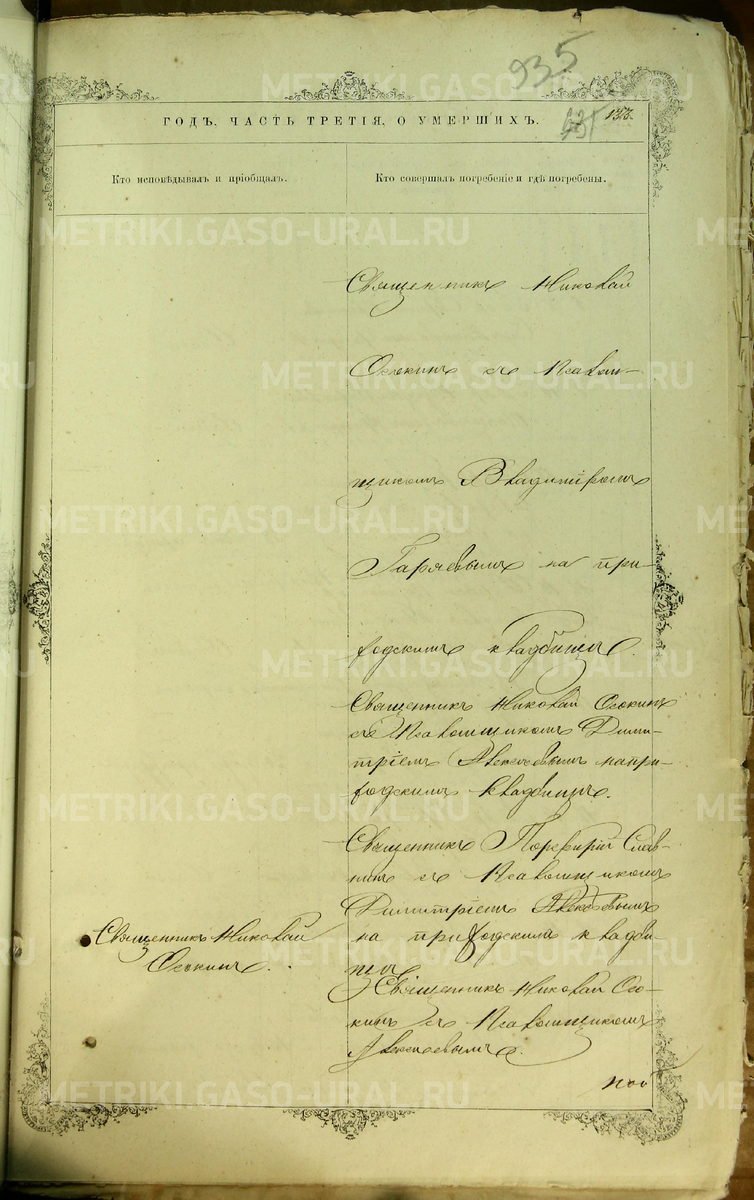 935
ГОДЪ, ЧАСТЬ ТРЕТІЯ, О УМЕРШИХЪ.
158.
Кто исповѣдывалъ и пріобщалъ.
Кто совершалъ погребеніе и гдѣ погребены.
Священникъ Николай
Осокинъ съ Псалом-
щикомъ Владиміромъ
Гаряевымъ на при-
ходскимъ кладбищѣ.
Священникъ Николай Осокинъ
съ Псаломщикомъ Дими-
тріемъ Алексѣевымъ на при-
ходскимъ кладбищѣ.
Священникъ Порфирій Слав-
нинъ съ Псаломщикомъ
Димитріемъ Алексѣевымъ
на приходскимъ кладби-
щѣ
Священникъ Николай
Осокинъ.
Священникъ Николай Осо-
кинъ съ Псаломщикомъ
Алексѣевымъ.
METRIKI.GASO-URAL.RU